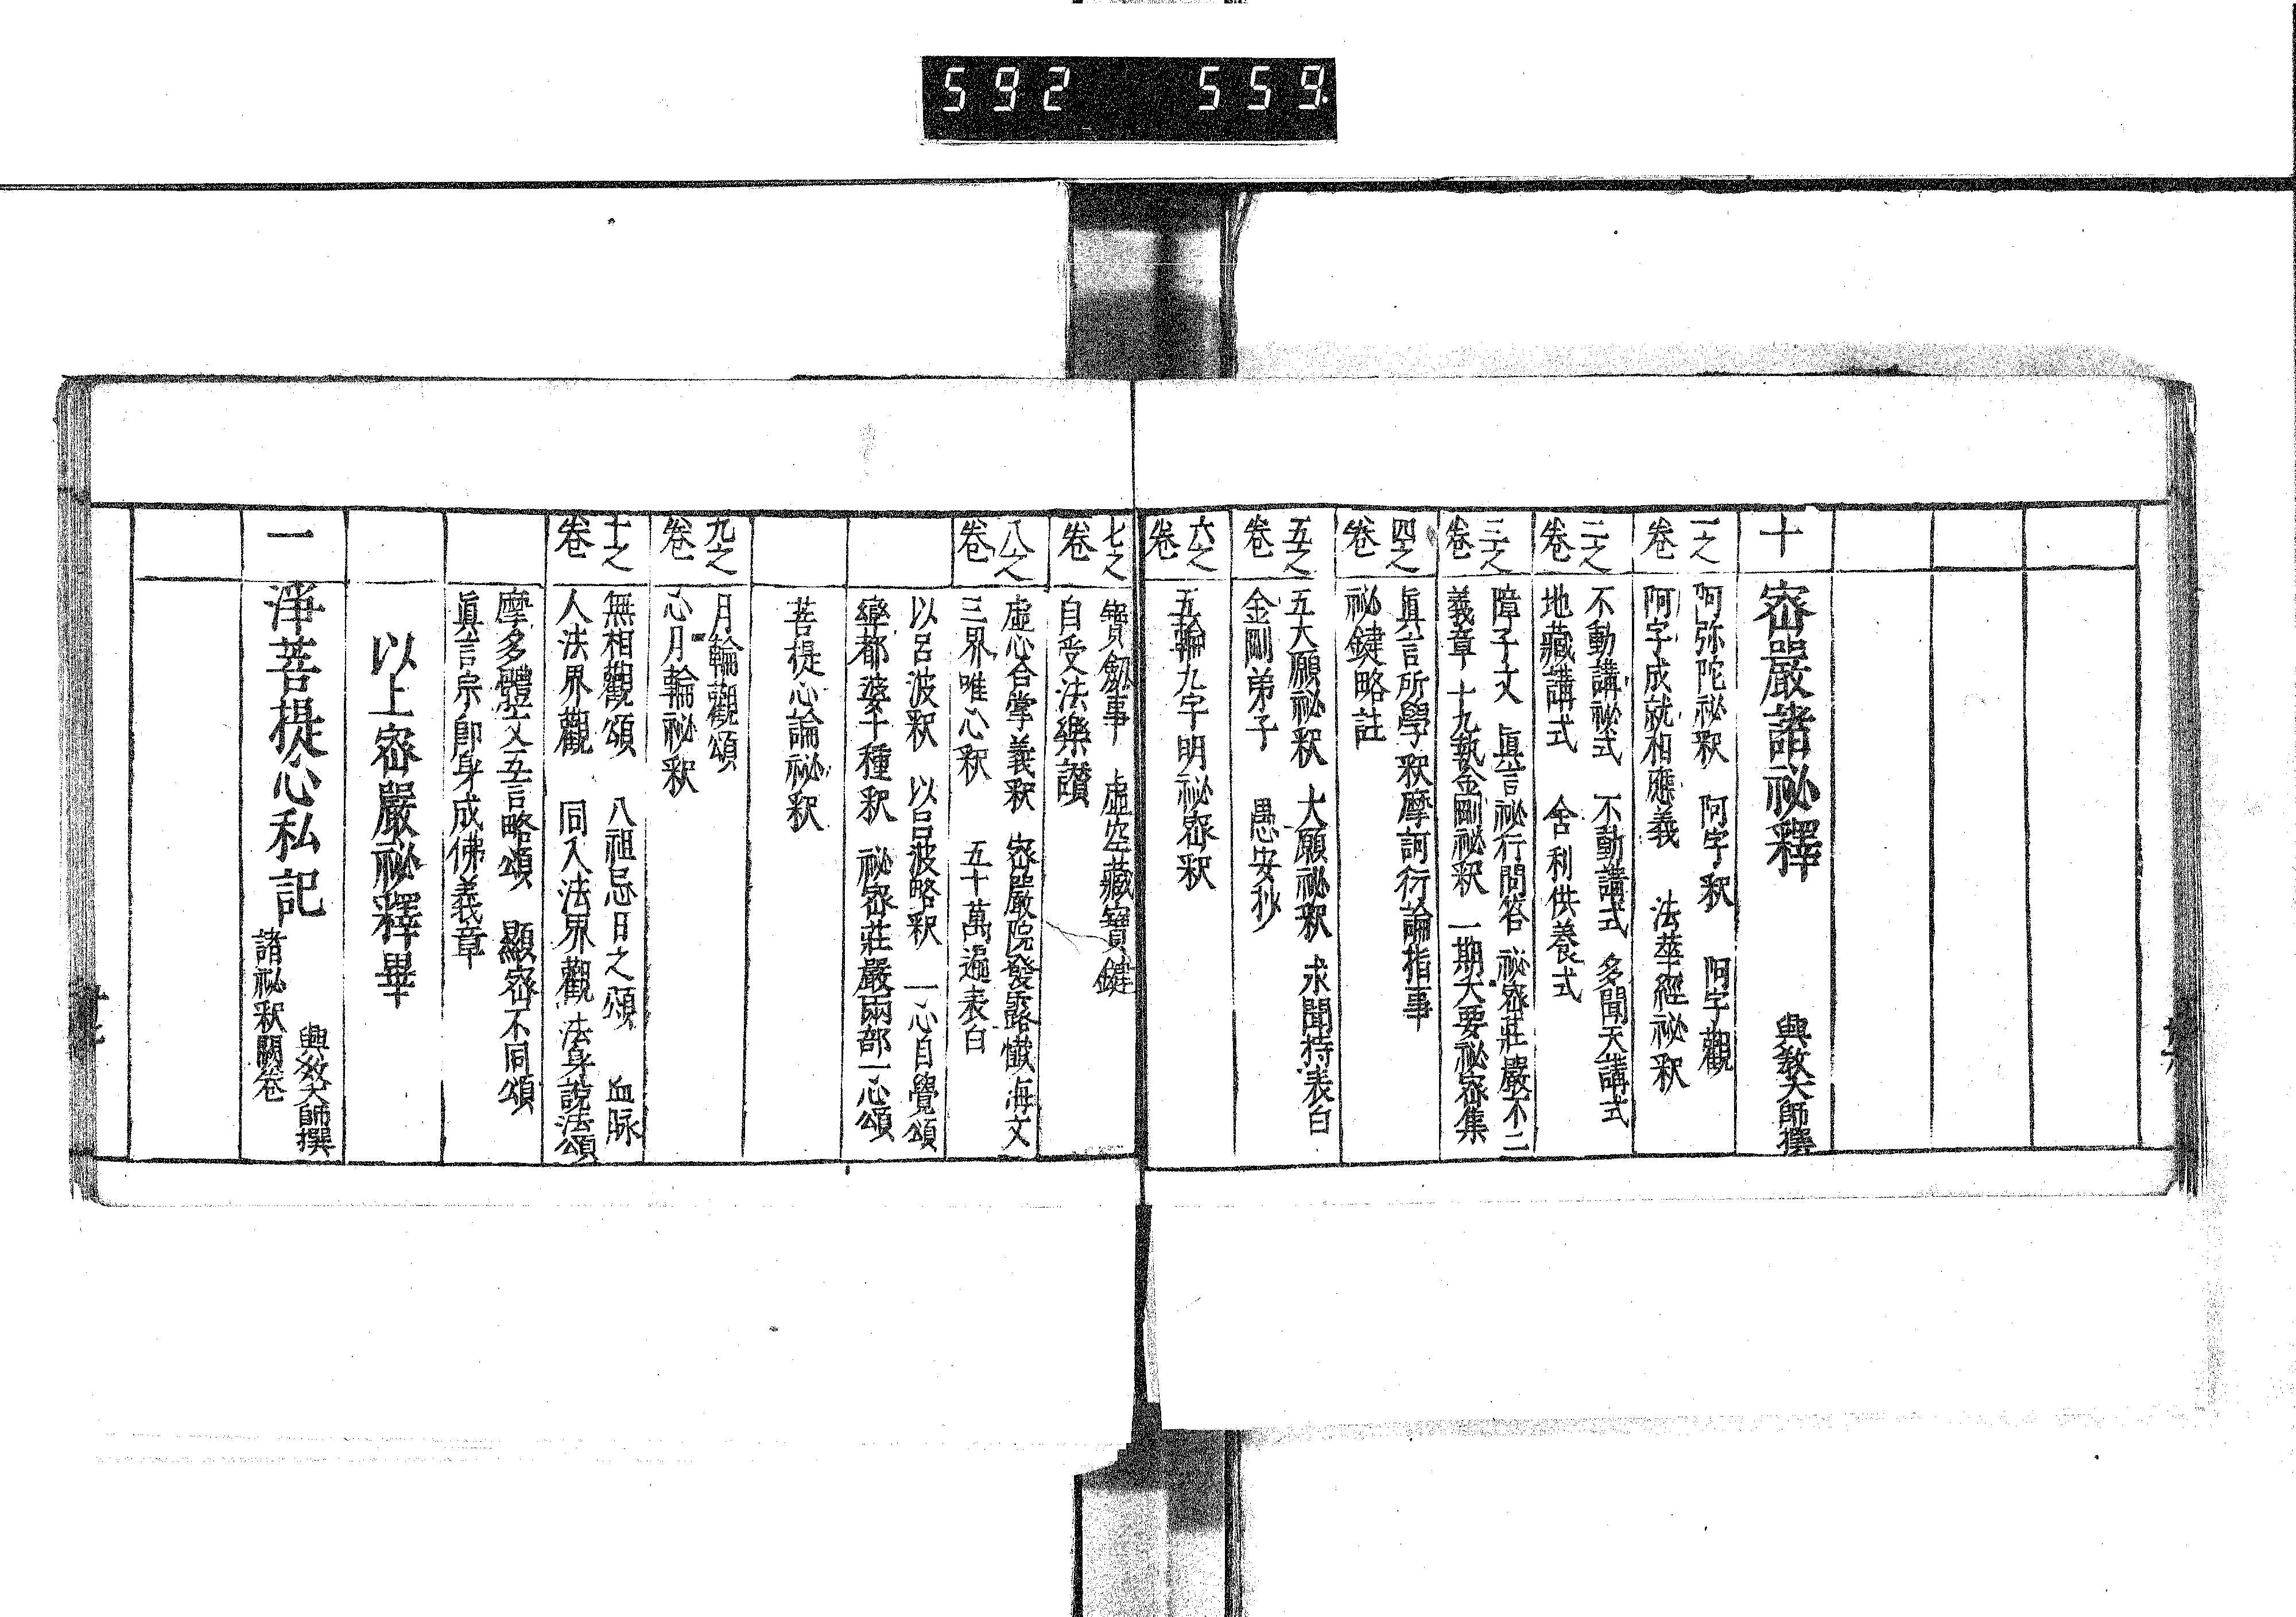 592 559
十 密嚴諸祕釋 興教大師撰
一之卷
阿弥陀祕釈 阿字釈 阿字觀
阿字成就相應義 法華經祕釈
二之卷
不動講祕式 不動講式 多聞天講式
地藏講式 舍利供養式
三之卷
障子文 眞言祕行問答 祕密莊嚴不二
義章 十九執金剛祕釈 一期大要祕密集
四之卷
眞言所學釈摩訶衍論指事
祕鍵略註
五之卷
五大願祕釈 大願祕釈 求聞持表白
金剛弟子 愚安抄
六之卷
五輪九字明祕密釈
七之卷
寶劔事 虛空藏寶鍵
自受法樂讃
八之卷
虛心合掌義釈 密嚴院發露懺海文
三界唯心釈 五十萬遍表白
以呂波釈 以呂波略釈 一心自覺頌
率都婆十種釈 祕密莊嚴兩部一心頌
菩提心論祕釈
九之卷
月輪觀頌
心月輪祕釈
十之卷
無相觀頌 八祖忌日之頌 血脉
人法界觀 同入法界觀 法身說法頌
摩多體文五言略頌 顯密不同頌
眞言宗即身成佛義章
以上密嚴祕釋畢
一 淨菩提心私記 興教大師撰
諸祕釈闕卷